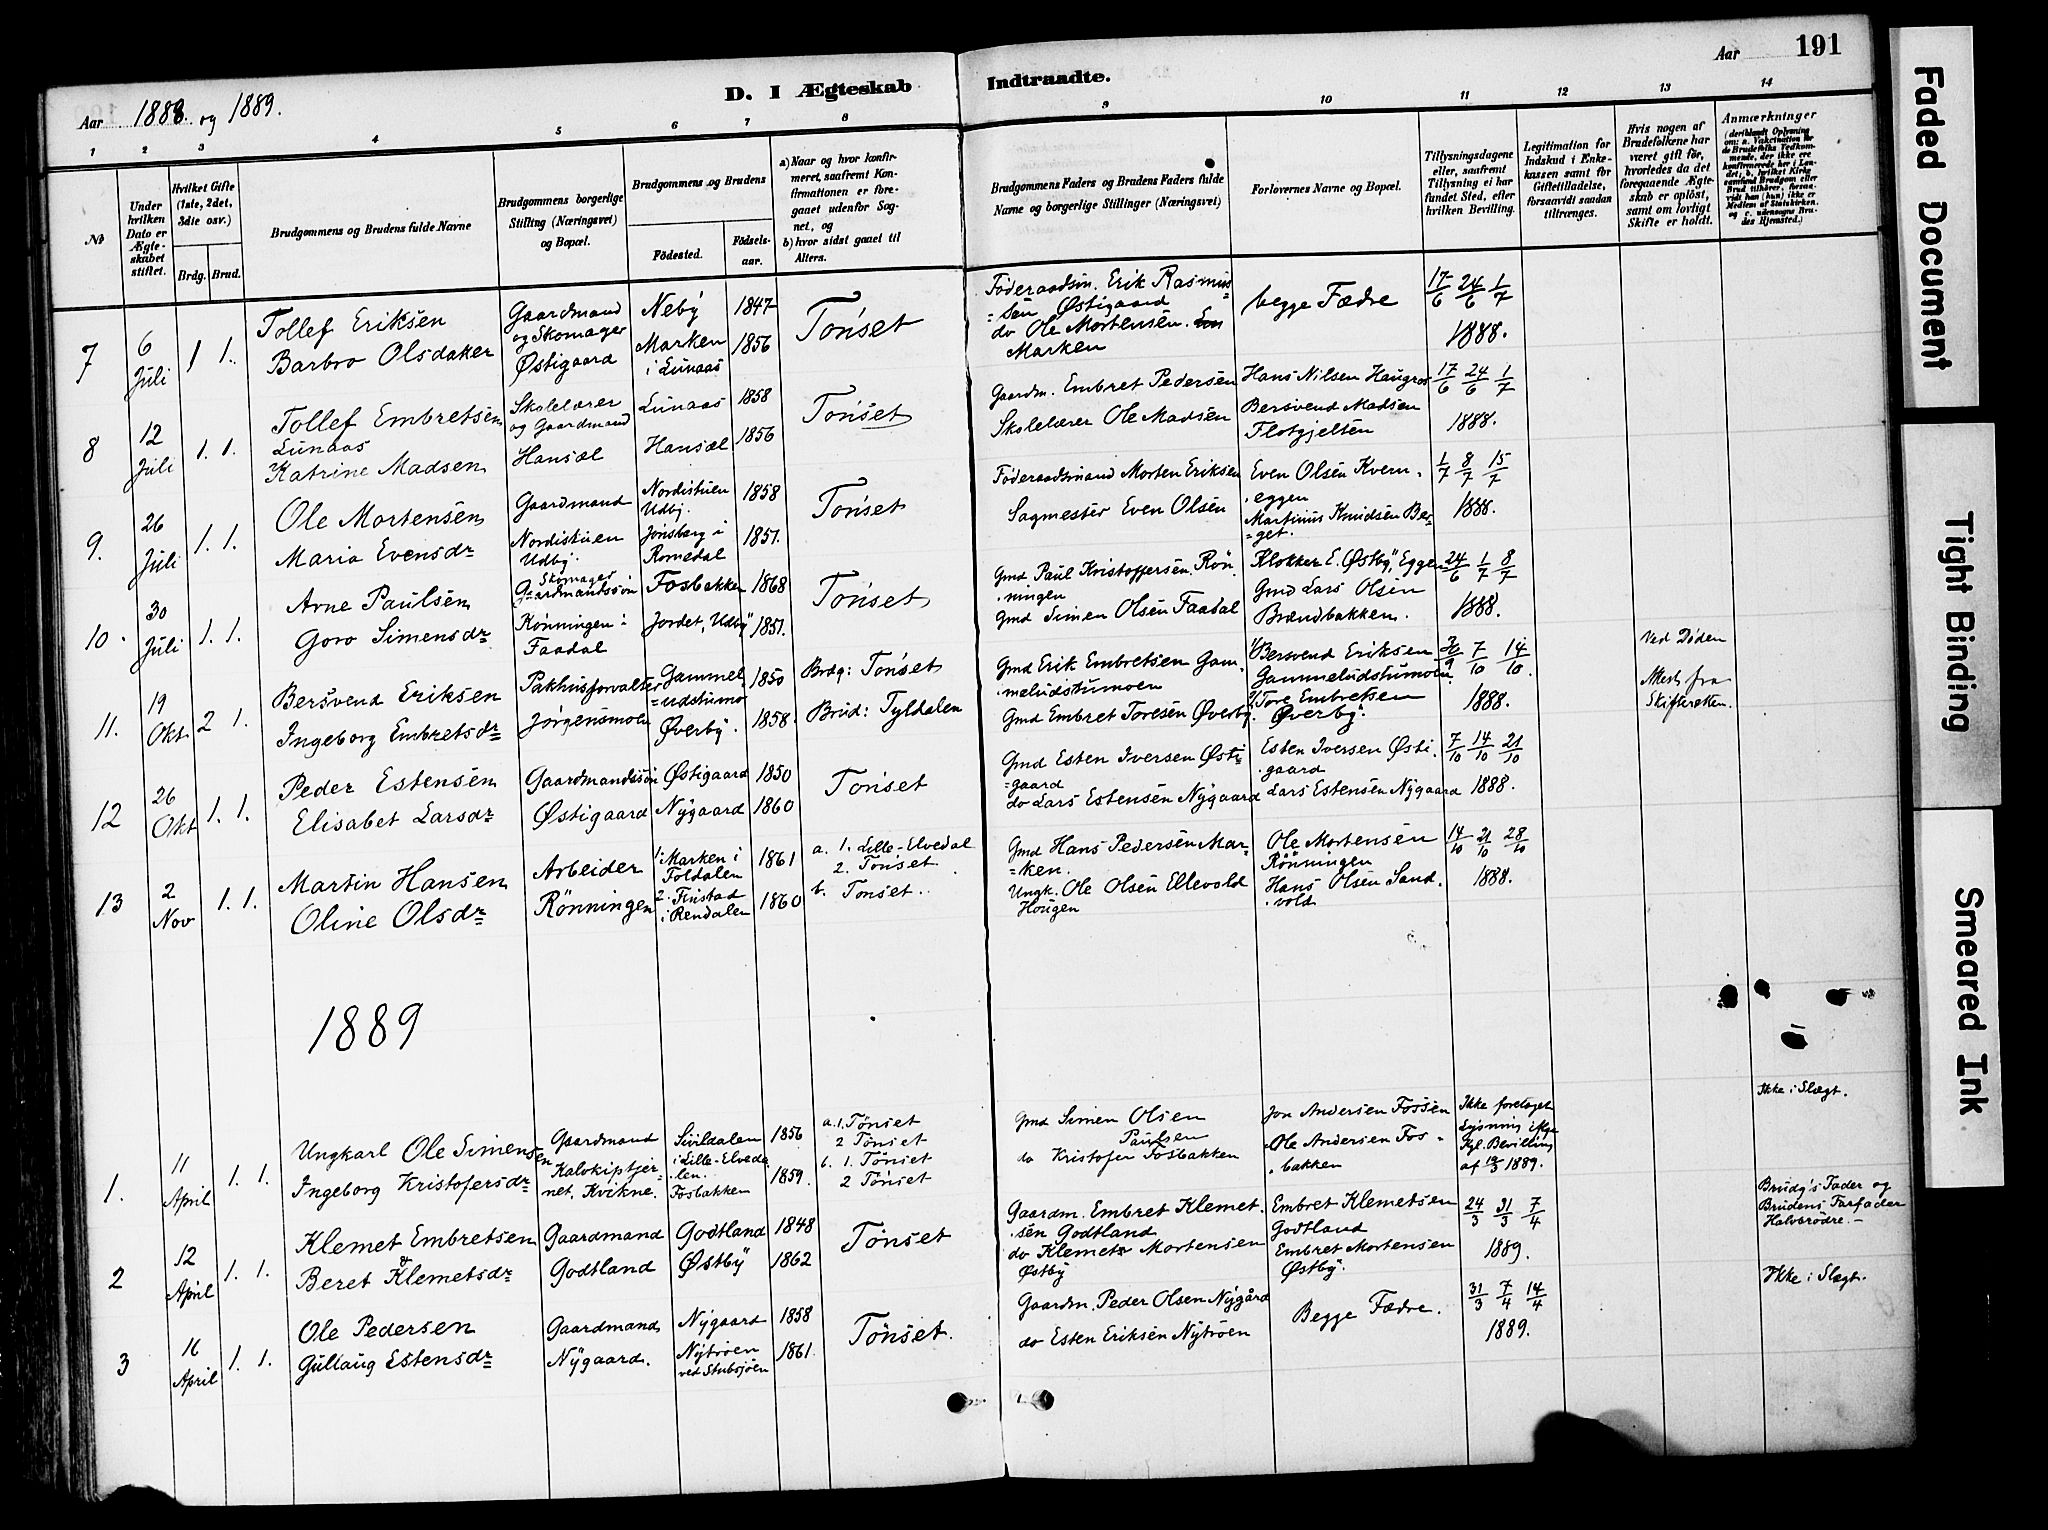 Aar 1888. og 1889.
D. I Ægteskab Indtraadte.
Aar 191
1 2 3 4 5 6 7 8 9 10 11 12 13 14
No
Under hvilken Dato er Ægteskabet stiftet.
Hvilket Gifte (1ste, 2det, 3die osv.)
Brdg. Brud.
Brudgommens og Brudens fulde Navne
Brudgommens borgerlige Stilling (Næringsvei) og Bopæl.
Brudgommens og Brudens
Födested. Födsels-aar.
a) Naar og hvor konfirmeret, saafremt Konfirmationen er foregaaet udenfor Sognet, og
b) hvor sidst gaaet til Alters.
Brudgommens Faders og Brudens Faders fulde Navne og borgerlige Stillinger (Næringsvei)
Forlovernes Navne og Bopæl.
Tillysningsdagene eller, saafremt Tillysning ei har fundet Sted, efter hvilken Bevilling.
Legitimation for Indskud i Enkekassen samt for Giftetilladelse, forsaavidt saadan tiltrænges.
Hvis nogen af Brudefolkene har været gift för, hvorledes da det foregaaende Ægteskab er oplöst, samt om lovligt Skifte er holdt.
Anmærkninger
7 6 Juli 1 1.
Tollef Eriksen
Barbro Olsdaker
Gaardmand og Skomager Østigaard
Neby 1847
Marken i Lunaas 1856
Tönset
Föderaadsm. Erik Rasmussen Østigaard
do Ole Mortensen
Marken
begge Fædre
17/6 24/6 1/7 1888.
8 12 Juli 1. 1.
Tollef Embretsen Lunaas
Katrine Madsen
Skolelærer og Gaardmand Hansæl
Lunaas 1858
Hansæl 1856
Tönset
Gaardm. Embret Pedersen
Skolelærer Ole Madsen
Hans Nilsen Haugros
Bersvend Madsen Flotgjelten
17/6 24/6 1/7 1888.
9. 26 Juli 1. 1.
Ole Mortensen
Maria Evensdr
Gaardmand Nordistuen Udby.
Nordistuen Udby. 1858
Jönsberg i Romedal 1851.
Tönset
Föderaadsmand Morten Eriksen
Sagmester Even Olsen
Even Olsen Kvern-eggen
Martinus Knudsen Berget.
1/7 8/7 15/7 1888.
10. 30 Juli 1. 1.
Arne Paulsen
Goro Simensdr
Skomager Gaardmandssön Rönningen i Faadal
Fosbakken 1868
Jordet, Udby 1851.
Tönset
Gmd Paul Kristoffersen Rönningen
Gmd Simen Olsen Faadal
Klokker E. Østby, Eggen
Gmd Lars Olsen Brændbakken.
24/6 1/7 8/7 1888.
11. 19 Okt 2 1.
Bersvend Eriksen
Ingeborg Embretsdr
Pakhusforvalter Jörgensmoen
Gammeludstumo 1850
Øverby. 1858.
Brdg: Tönset
Brud: Tyldalen
Gmd Erik Embretsen Gammeludstumoen
Gmd Embret Toresen Øverby
1/ Bersvend Eriksen Gammeludstumoen
2/ Tore Embretsen Øverby.
30/9 7/10 14/10 1888.
Ved Döden
Attest fra Skifteretten.
12 26 Okt 1. 1.
Peder Estensen
Elisabet Larsdr
Gaardmandssön Østigaard
Østigaard 1850
Nygaard 1860
Tönset
Gmd Esten Iversen Østigaard
do Lars Estensen Nygaard
Esten Iversen Østigaard
Lars Estensen Nygaard
7/10 14/10 21/10 1888.
13 2 Nov 1. 1.
Martin Hansen
Oline Olsdr
Arbeider Rönningen
1. Marken i Foldalen 1861
2. Finstad i Rendalen 1860
a. 1. Lille-Elvedal
2. Tönset.
b. Tönset.
Gmd Hans Pedersen Marken.
Ungk. Ole Olsen Ellevold Hougen
Ole Mortensen Rönningen
Hans Olsen Sandvold
14/10 21/10 28/10 1888.
1889
1. 11 April 1. 1.
Ungkarl Ole Simensen
Ingeborg Kristofersdr
Gaardmand Kalvkiptjernet, Kvikne.
Sivildalen i Lille-Elvedalen. 1856
Fosbakken 1859.
a. 1. Tönset
2 Tönset
b. 1. Tönset
2 Tönset
Gmd Simen Olsen
do Kristofer Paulsen Fosbakken
Jon Andersen Fossen
Ole Andersen Fosbakken
Ikke foretaget Lysning ifge Kgl. Bevilling af 19/3 1889.
Ikke i Slægt.
2 12 April 1. 1.
Klemet Embretsen
&
Beret Klemetsdr
Gaardmand Godtland
Godtland 1848
Østby 1862
Tönset
Gaardm. Embret Klemetsen Godtland
do Klemet Mortensen Østby
Embret Klemetsen Godtland
Embret Mortensen Østby.
24/3 31/3 7/4 1889.
Brudg's Fader og Brudens Farfader Halvbrödre.
3 16 April 1. 1.
Ole Pedersen
Gullaug Estensdr
Gaardmand Nygaard.
Nygaard 1858
Nytröen ved Stubsjöen 1861
Tönset.
Gaardm. Peder Olsen Nygård
do Esten Eriksen Nytröen
Begge Fædre.
31/3 7/4 14/4 1889.
Ikke i Slægt.
Faded Document
Tight Binding
Smeared Ink